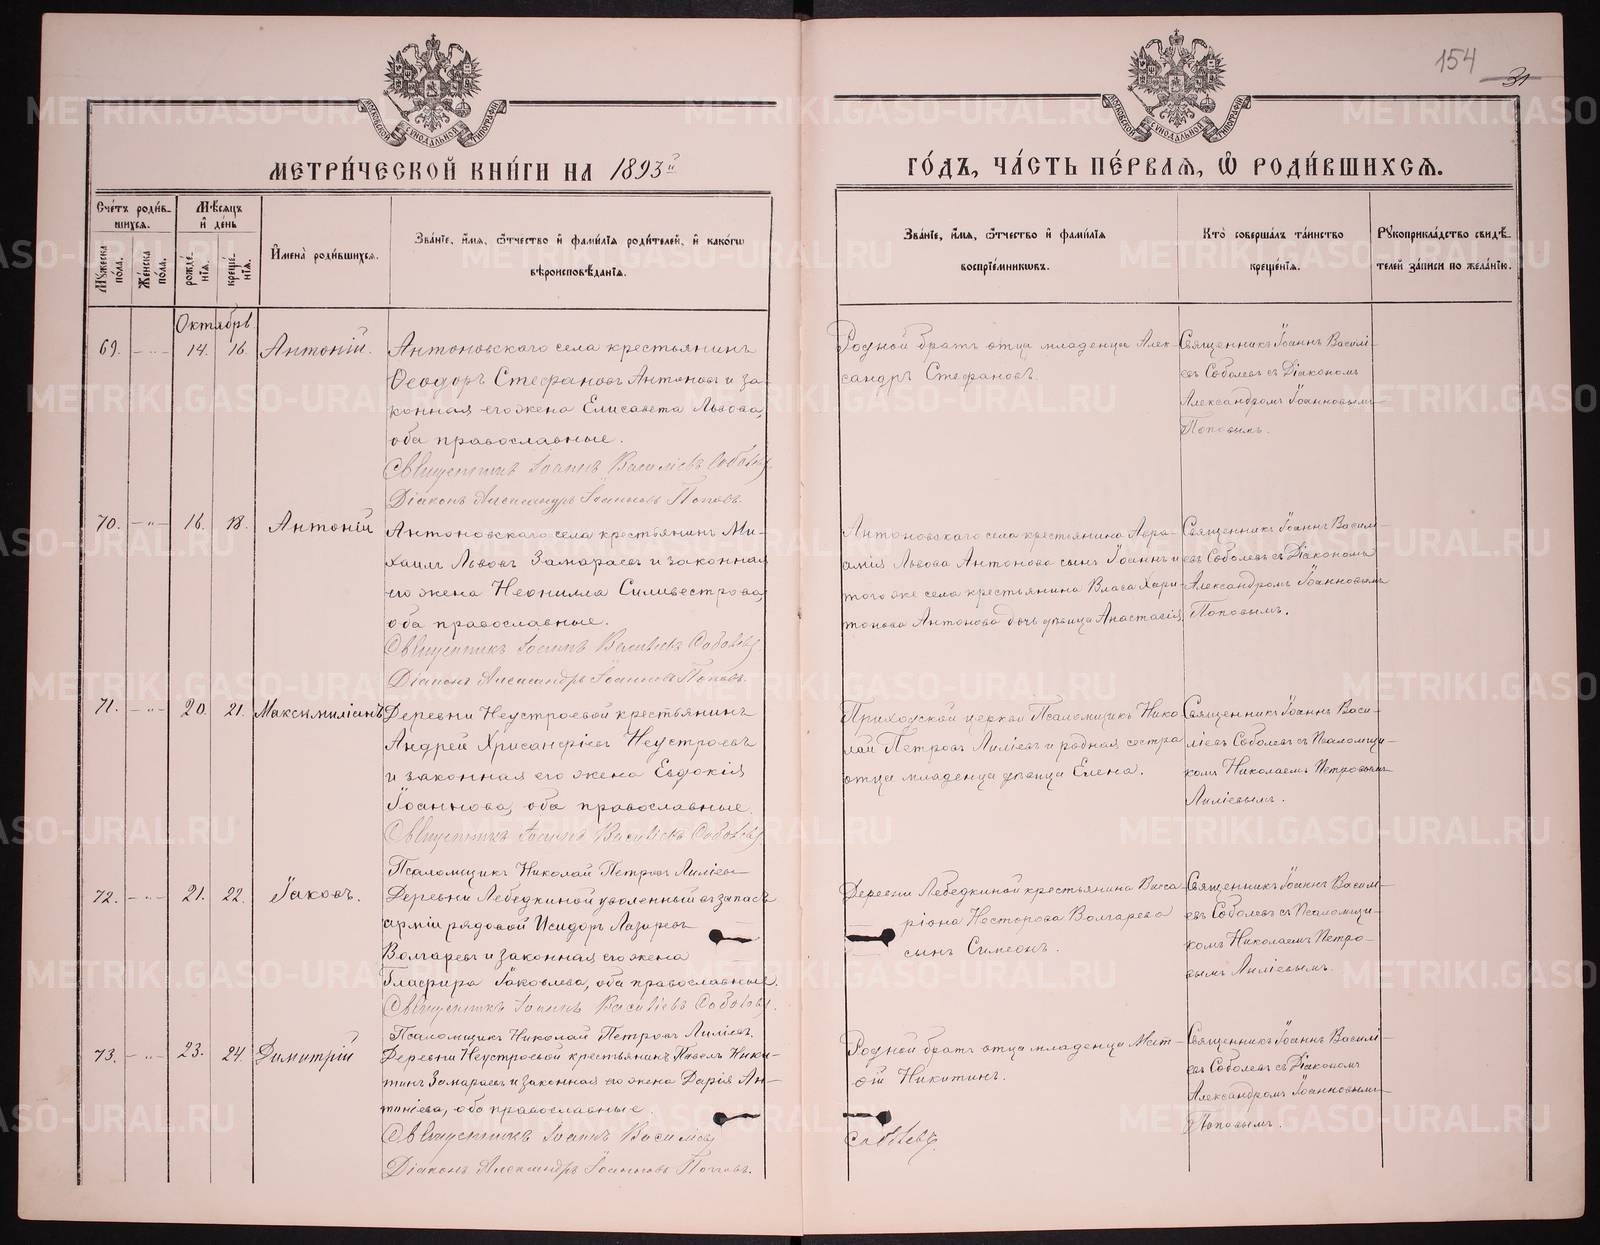 154
31
МОСКОВСКОЙ СѴНОДАЛЬНОЙ ТИПОГРАФІИ
МОСКОВСКОЙ СѴНОДАЛЬНОЙ ТИПОГРАФІИ
МЕТРИ́ЧЕСКОЙ КНИ́ГИ НА 1893й
ГО́ДЪ, ЧА́СТЬ ПЕ́РВАѦ, Ѽ РОДИ́ВШИХСѦ.
Сче́тъ роди́в-
шихся.
Мѣ́сяцъ
и҆ де́нь
Мꙋ́жеска по́ла.
Же́нска по́ла.
рожде́-
нїя.
креще́-
нїя.
И҆мена̀ роди́вшихся.
Зва́нїе, и҆́мя, ѻ҆́тчество и҆ фами́лїя роди́телей, и҆ како́гѡ
вѣроисповѣ́данїя.
Зва́нїе, и҆́мя, ѻ҆́тчество и҆ фами́лїя
воспрїе́мникѡвъ.
Кто̀ соверша́лъ та́инство
креще́нїя.
Рꙋкоприкла́дство свидѣ́-
телей за́писи по жела́нїю.
Октябрь
69. — „ — 14. 16. Антоній.
Антоновскаго села крестьянинъ
Ѳеодоръ Стефановъ Антоновъ и за-
конная его жена Елисавета Львова,
оба православные.
Священникъ Іоаннъ Василіевъ Соболевъ
Діаконъ Александръ Іоанновъ Поповъ.
Родной братъ отца младенца Алек-
сандръ Стефановъ.
Священникъ Іоаннъ Василі-
евъ Соболевъ съ Діакономъ
Александромъ Іоанновымъ
Поповымъ.
70. — „ — 16. 18. Антоній
Антоновскаго села крестьянинъ Ми-
хаилъ Львовъ Замараевъ и законная
его жена Неонилла Силивестрова,
оба православные.
Священникъ Іоаннъ Василіевъ Соболевъ
Діаконъ Александръ Іоанновъ Поповъ.
Антоновскаго села крестьянина Авра-
амія Львова Антонова сынъ Іоаннъ и
того же села крестьянина Власа Хари-
тонова Антонова дочь дѣвица Анастасія.
Священникъ Іоаннъ Васил-
евъ Соболевъ съ Діакономъ
Александромъ Іоанновымъ
Поповымъ.
71. — „ — 20. 21. Максимиліанъ
Деревни Неустроевой крестьянинъ
Андрей Хрисанфіевъ Неустроевъ
и законная его жена Евдокія
Іоаннова, оба православные.
Священникъ Іоаннъ Василіевъ Соболевъ
Псаломщикъ Николай Петровъ Лиліевъ
Приходской церкви Псаломщикъ Нико-
лай Петровъ Лиліевъ и родная сестра
отца младенца дѣвица Елена.
Священникъ Іоаннъ Васи-
ліевъ Соболевъ съ Псаломщи-
комъ Николаемъ Петровымъ
Лиліевымъ.
72. — „ — 21. 22. Іаковъ.
Деревни Лебедкиной уволенный въ запасъ
арміи рядовой Исидоръ Лазаревъ
Волгаревъ и законная его жена
Глафира Іаковлева, оба православные.
Священникъ Іоаннъ Василіевъ Соболевъ.
Псаломщикъ Николай Петровъ Лиліевъ.
Деревни Лебедкиной крестьянина Висса-
ріона Несторова Волгарева
сынъ Симеонъ.
Священникъ Іоаннъ Васил-
евъ Соболевъ съ Псаломщи-
комъ Николаемъ Петро-
вымъ Лиліевымъ.
73. — „ — 23. 24. Димитрій
Деревни Неустроевой крестьянинъ Павелъ Ники-
тинъ Замараевъ и законная его жена Дарія Ан-
тоніева, оба православные.
Священникъ Іоаннъ Василіевъ
Соболевъ
Діаконъ Александръ Іоанновъ Поповъ.
Родной братъ отца младенца Мат-
ѳій Никитинъ.
Священникъ Іоаннъ Васил-
евъ Соболевъ съ Діакономъ
Александромъ Іоанновымъ
Поповымъ.
METRIKI.GASO-URAL.RU